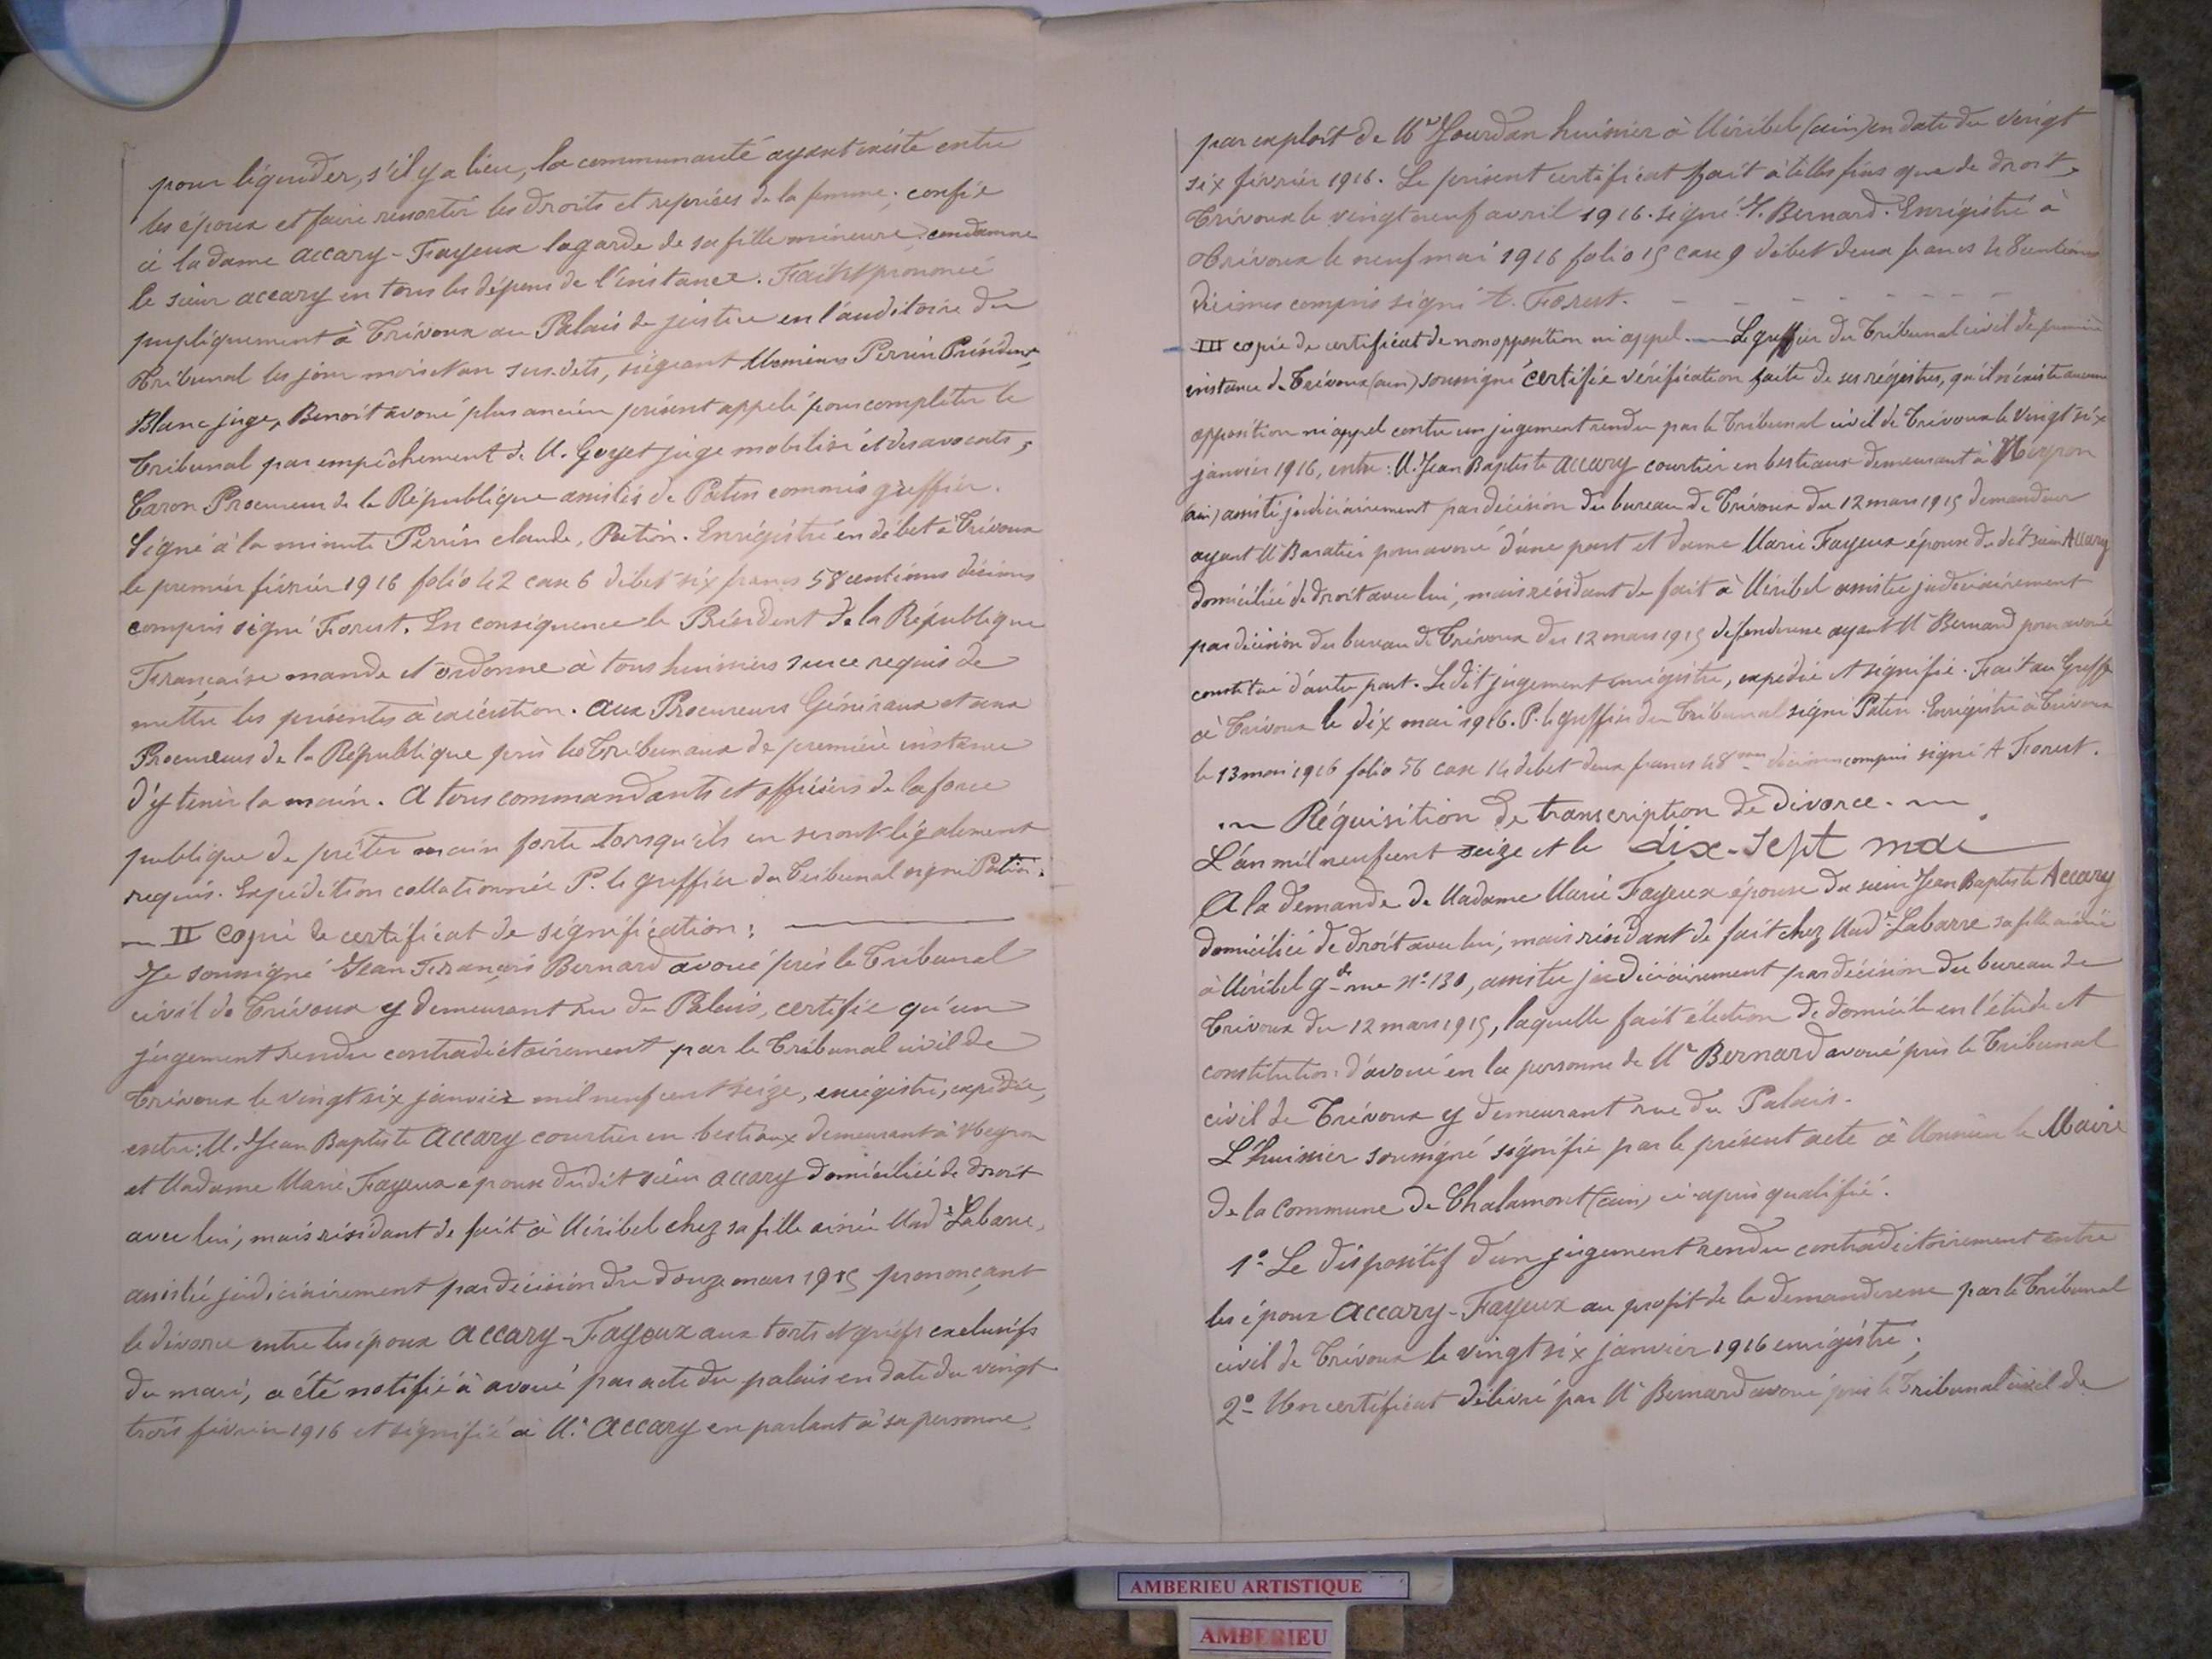 pour liquider, s'il y a lieu, la communauté ayant existé entre
les époux et faire ressortir les droits et reprises de la femme; confie
à la dame Accary-Fayeux la garde de sa fille mineure; condamne
le sieur Accary en tous les dépens de l'instance. Fait et prononcé
publiquement à Trévoux au Palais de justice en l'auditoire du
Tribunal les jour mois et an sus-dits, siégeant Messieurs Perrin Président,
Blanc juge, Benoit avoué plus ancien présent appelé pour compléter le
Tribunal par empêchement de M. Goyet juge mobilisé et des avocats,
Caron Procureur de la République assistés de Patin commis greffier.
Signé à la minute Perrin claude, Patin. Enrégistré en débet à Trévoux
le premier février 1916 folio 42 case 6 débet six francs 58 centimes décimes
compris signé Forest. En conséquence le Président de la République
Française mande et ordonne à tous huissiers sur ce requis de
mettre les présentes à exécution. Aux Procureurs Généraux et aux
Procureurs de la République près les Tribunaux de première instance
d'y tenir la main. A tous commandants et officiers de la force
publique de prêter main forte lorsqu'ils en seront légalement
requis. Expédition collationnée P. le greffier du Tribunal signé Patin.
II Copie de certificat de signification:
Je soussigné Jean François Bernard avoué près le Tribunal
civil de Trévoux y demeurant rue du Palais, certifie qu'un
jugement rendu contradictoirement par le Tribunal civil de
Trévoux le vingt six janvier mil neuf cent seize, enrégistré, expédié,
entre: M. Jean Baptiste Accary courtier en bestiaux demeurant à Neyron
et Madame Marie Fayeux épouse dudit sieur Accary domiciliée de droit
avec lui, mais résidant de fait à Miribel chez sa fille ainée Mad.e Labarre,
assistée judiciairement par décision du douze mars 1915 prononçant
le divorce entre les époux Accary-Fayeux aux torts et griefs exclusifs
du mari, a été notifié à avoué par acte du palais en date du vingt
trois février 1916 et signifié à M. Accary en parlant à sa personne,
par exploit de Me Jourdan huissier à Miribel (ain) en date du vingt
six février 1916. Le présent certificat fait à telles fins que de droit,
Trévoux le vingt neuf avril 1916. signé J. Bernard. Enrégistré à
Trévoux le neuf mai 1916 folio 15 case 9 débet deux francs 48 centimes
décimes compris signé A. Forest.
III copie de certificat de non opposition ni appel. Le greffier du Tribunal civil de première
instance de Trévoux (ain) soussigné certifie vérification faite de ses régistres, qu'il n'existe aucune
opposition ni appel contre un jugement rendu par le Tribunal civil de Trévoux le vingt six
janvier 1916, entre: M. Jean Baptiste Accary courtier en bestiaux demeurant à Neyron
(ain) assisté judiciairement par décision du bureau de Trévoux du 12 mars 1915 demandeur
ayant Me Baratier pour avoué d'une part et dame Marie Fayeux épouse du dit sieur Accary
domiciliée de droit avec lui, mais résidant de fait à Miribel assistée judiciairement
par décision du bureau de Trévoux du 12 mars 1915 défenderesse ayant Me Bernard pour avoué
constitué d'autre part. Ledit jugement enrégistré, expédié et signifié. Fait au Greffe
à Trévoux le dix mai 1916. P. le greffier du Tribunal signé Patin. Enrégistré à Trévoux
le 13 mai 1916 folio 56 case 14 débet deux francs 48 décimes compris signé A Forest.
Réquisition de transcription de divorce.
L'an mil neuf cent seize et le dix-sept mai
A la demande de Madame Marie Fayeux épouse du sieur Jean Baptiste Accary
domiciliée de droit avec lui, mais résidant de fait chez Mad.e Labarre sa fille ainée
à Miribel gde rue N° 130, assistée judiciairement par décision du bureau de
Trévoux du 12 mars 1915, laquelle fait élection de domicile en l'étude et
constitution d'avoué en la personne de Me Bernard avoué près le Tribunal
civil de Trévoux y demeurant rue du Palais.
L'huissier soussigné signifie par le présent acte à Monsieur le Maire
de la commune de Chalamont (ain) ci-après qualifié.
1° Le dispositif d'un jugement rendu contradictoirement entre
les époux Accary-Fayeux au profit de la demanderesse par le Tribunal
civil de Trévoux le vingt six janvier 1916 enrégistré;
2° Un certificat délivré par Me Bernard avoué près le Tribunal civil de
AMBERIEU ARTISTIQUE
AMBERIEU